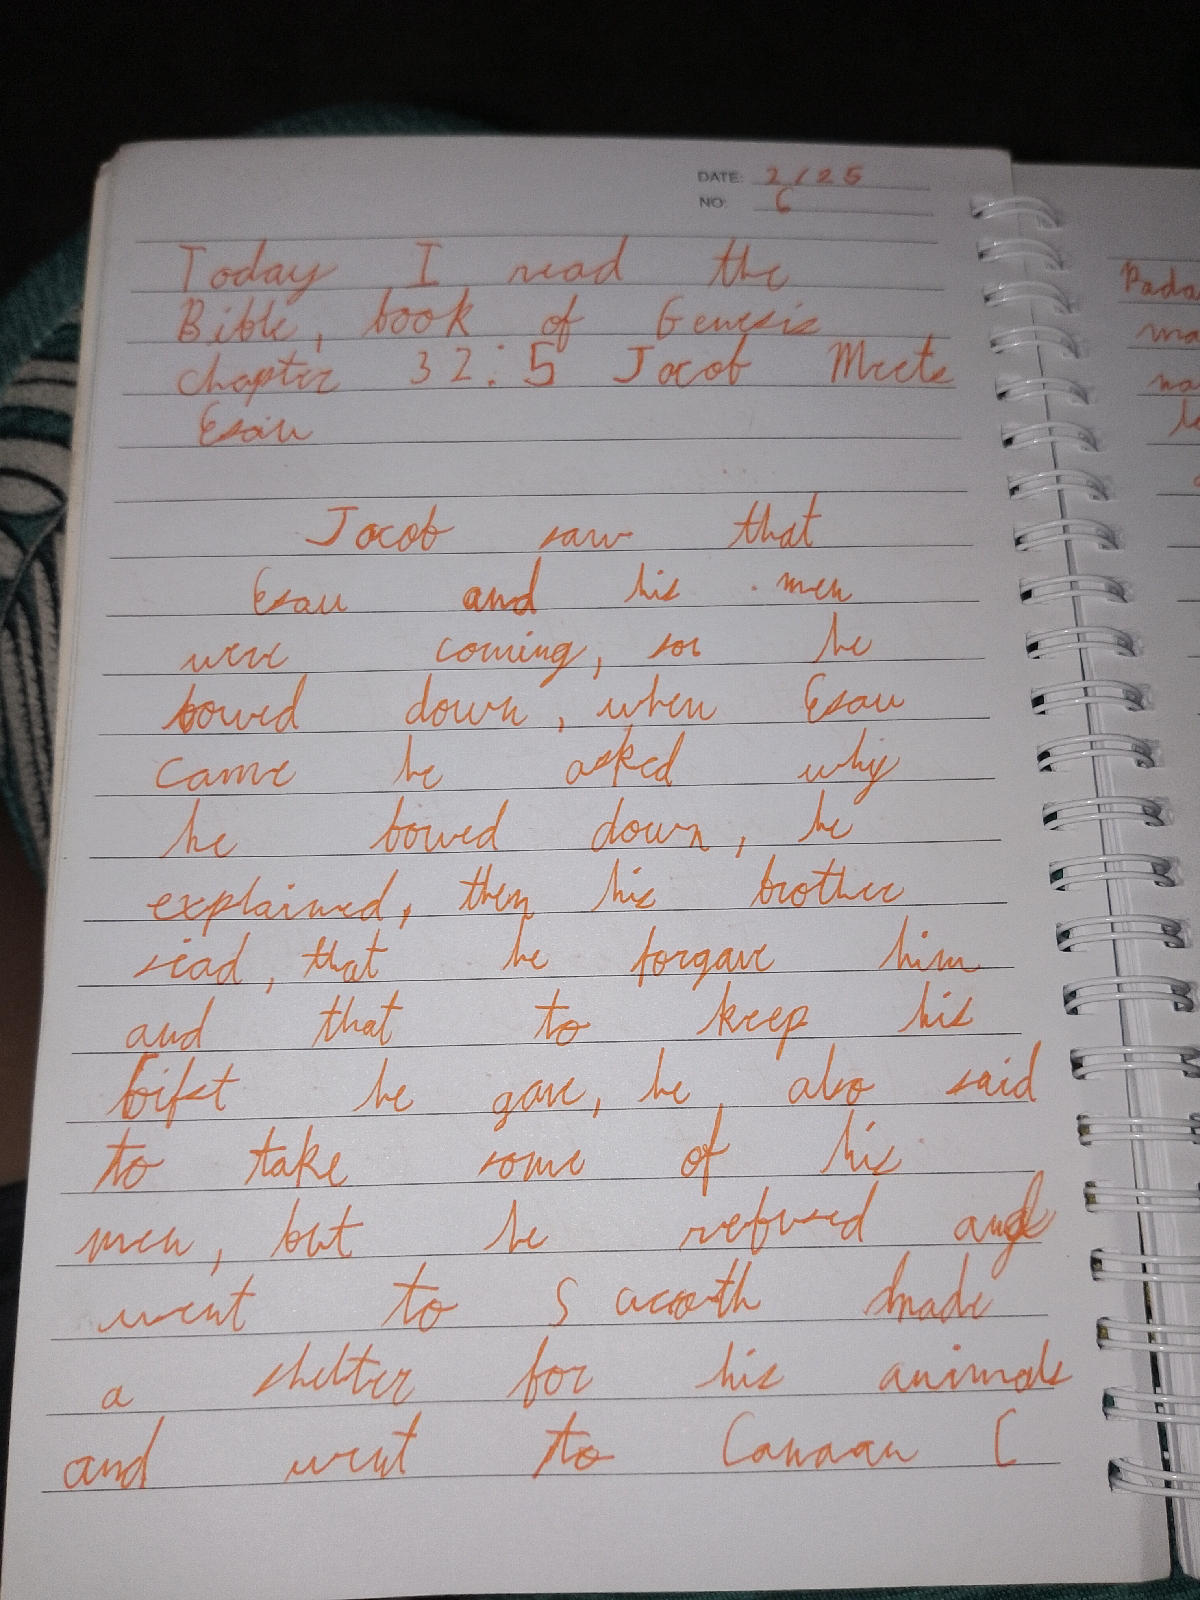 DATE: 2/25
NO: 6
Today I read the
Bible, book of Genesis
chapter 32:5 Jacob Meets
Esau
Jacob saw that
Esau and his men
were coming, so he
bowed down, when Esau
came he asked why
he bowed down, he
explained, then his brother
siad, that he forgave him
and that to keep his
he gave, he also said
to take some of his
men, but he refused and
went to made
a shelter for his animals
and went to Canaan (
Pada
ma
na
le